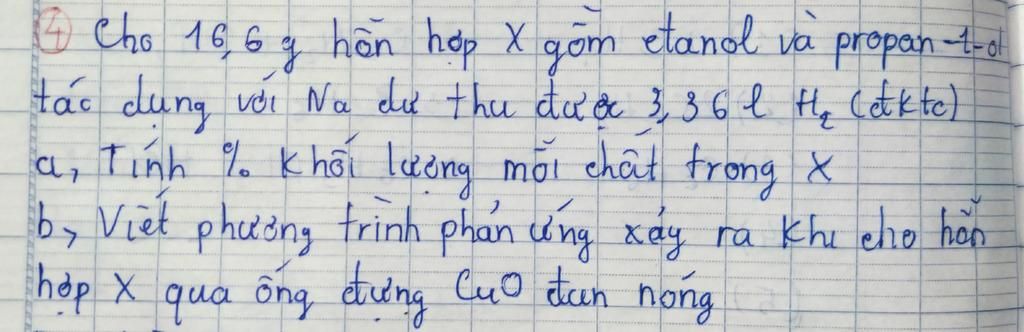 ④ Cho 16,6 g hỗn hợp X gồm etanol và propan-1-ol
tác dụng với Na dư thu được 3,36 l H₂ (đktc)
a, Tính % khối lượng mỗi chất trong X
b, Viết phương trình phản ứng xảy ra khi cho hỗn
hợp X qua ống đựng CuO đun nóng